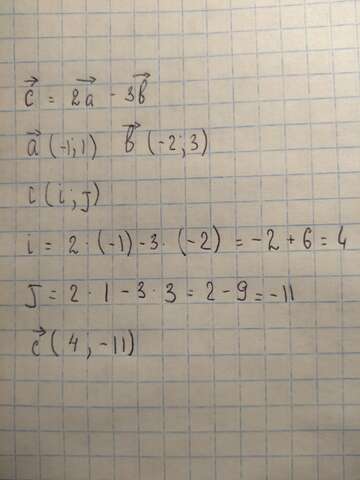 c⃗ = 2a⃗ - 3b⃗
a⃗ (-1; 1) b⃗ (-2; 3)
c (i; j)
i = 2 · (-1) - 3 · (-2) = -2 + 6 = 4
j = 2 · 1 - 3 · 3 = 2 - 9 = -11
c⃗ ( 4 ; -11)